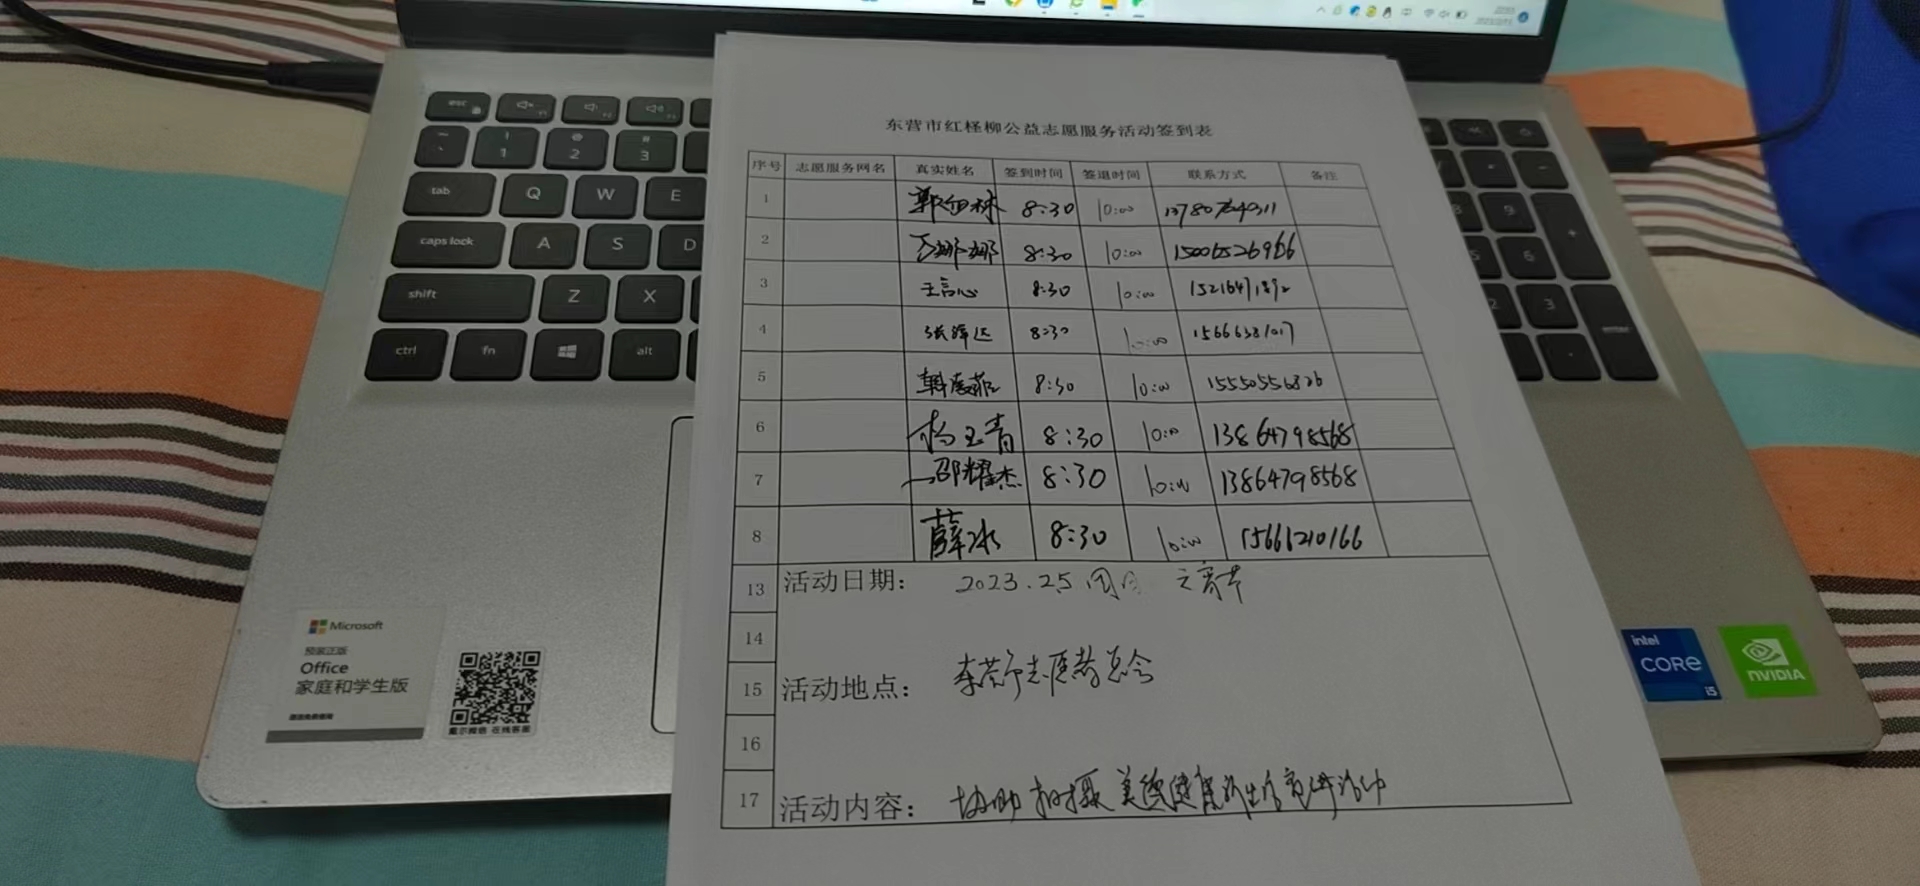 esc
1 2 3
tab Q W E
caps lock A S D
shift Z X
ctrl fn alt
Microsoft
预装正版
Office
家庭和学生版
intel
CORE
i5
NVIDIA
东营市红柽柳公益志愿服务活动签到表
序号 志愿服务网名 真实姓名 签到时间 签退时间 联系方式 备注
1 8:30 10:00
2 娜娜 8:30 10:00 15006526966
3 王言心 8:30 10:00
4 8:30 10:00
5 韩 8:30 10:00
6 杨玉青 8:30 10:00 13864798568
7 邵耀杰 8:30 10:00 13864798568
8 薛冰 8:30 10:00 15666210166
13 活动日期： 2023.2.5 周日 元宵节
14
15 活动地点： 东营市志愿者总会
16
17 活动内容： 协助拍摄美德健康新生活宣传活动